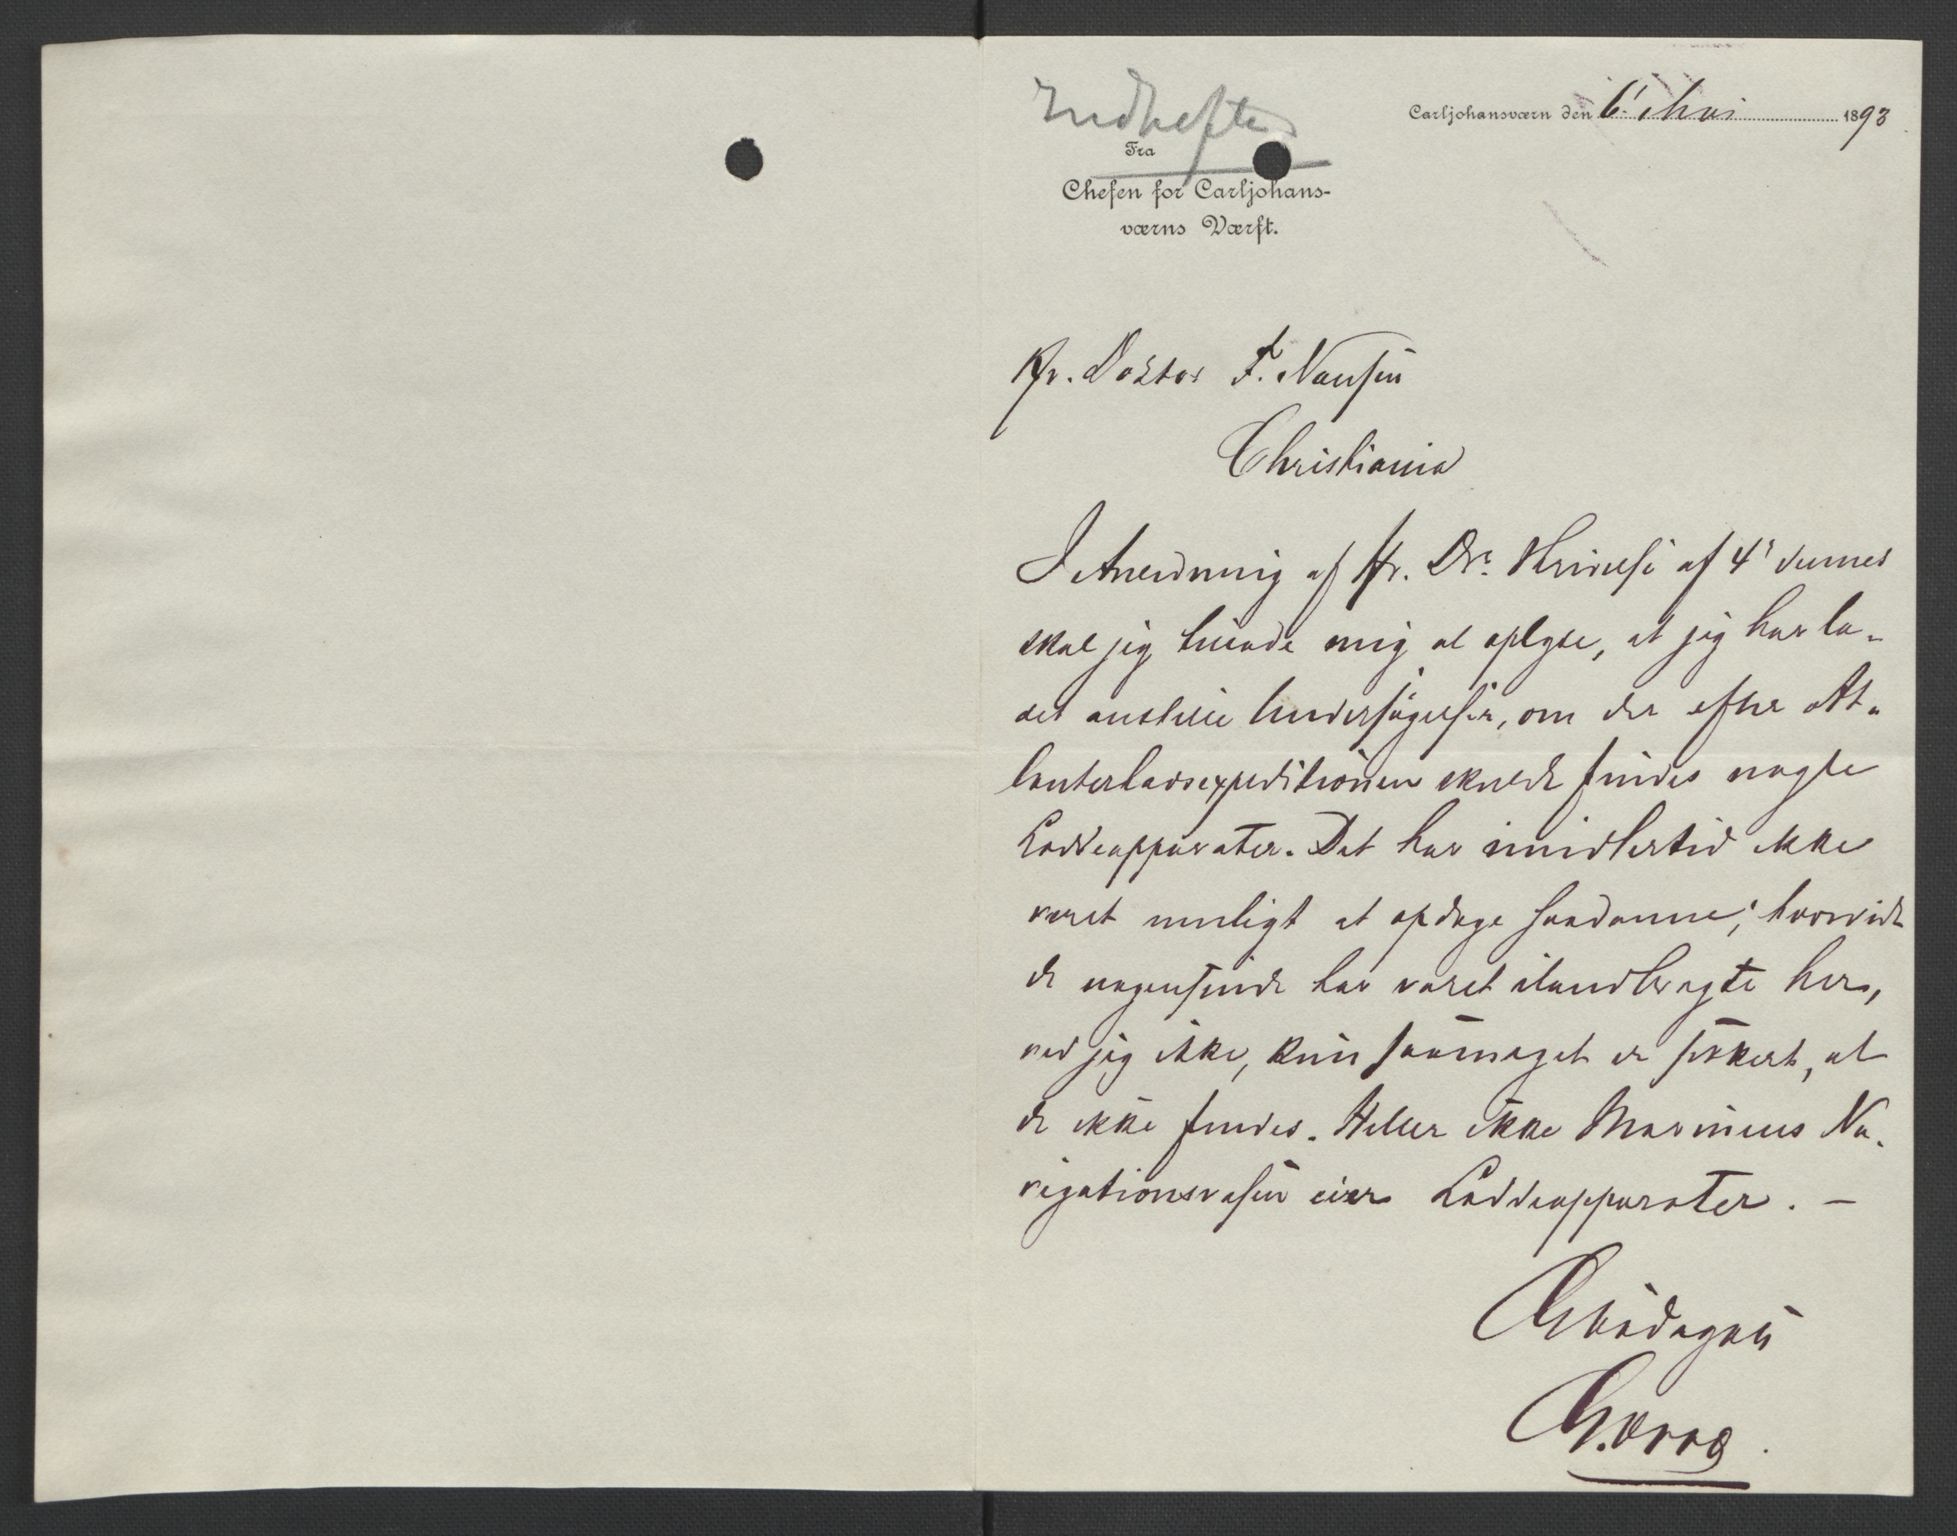 Indheftes
Carljohansværn den 6' Mai 1893
Fra
Chefen for Carljohans-
værns Værft.
Hr. Doktor F. Nansen
Christiania
I Anledning af Hr. Dr. Skrivelse af 4' dennes
skal jeg tillade mig at oplyse, at jeg har la-
det anstille Undersøgelser, om der efter At-
lanterhavsexpeditionen skulde findes nogle
Loddeapparater. Det har imidlertid ikke
været muligt at opdage saadanne; hvorvidt
de nogensinde har været ilandbragte her,
ved jeg ikke, kun saameget er sikkert, at
de ikke findes. Heller ikke Marinens Na-
vigationsvæsen eier Loddeapparater. —
Ærbødigst